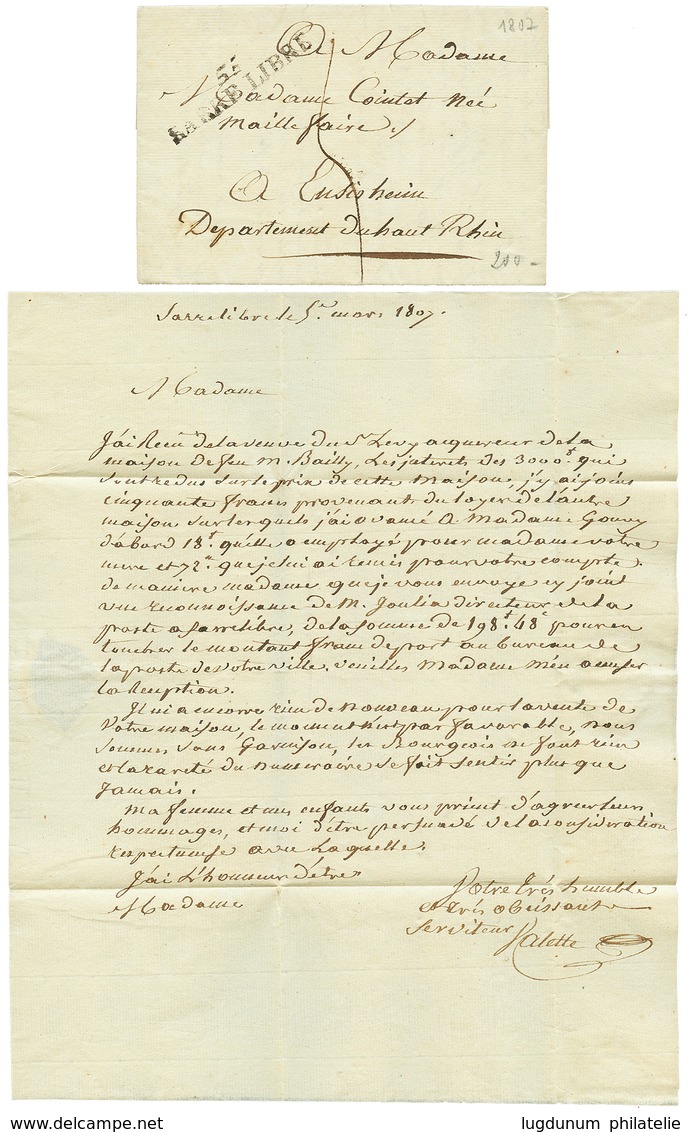 1807
A Madame
55
SARRE LIBRE
Madame Cointet Neé
Maillefaire ./
5
A Ensisheim
Departement du haut Rhin
200 -
Sarrelibre le 5e. mars 1807.
Madame
J'ai Recu de la veuve du Sr. Levy acquereur de la
maison de feu m. Bailly, Les jnterets des 3000 qui
sont redus sur le prix de cette Maison, j'y ai joins
cinquante francs provenants du loyer de l'autre
maison sur lesquels j'ai avancé a Madame Gouvy
d'abord 18 qu'elle a employé pour madame votre
mere et 72 que je lui ai remis pour votre compte
de maniere madame que je vous envoye cy joint
une reconnoissance de M. Joulia directeur de la
poste a Sarrelibre, de la somme de 198 48 pour en
toucher le montant franc de port au bureau de
la poste de votre ville. veuillez Madame m'en accuser
la Reception.
Il n'i a encore rien de nouveau pour la vente de
votre maison, le moment n'est pas favorable, nous
sommes sans Garnison, les Bourgeois ne font rien
et la rareté du numeraire se fait sentir plus que
Jamais.
Ma femme et mes enfants vous prient d'agreer leurs
hommages, et moi d'être persuadé de la consideration
respectueuse avec Laquelle.
J'ai L'honneur d'être
Madame
Votre très humble
et très obeissant
Serviteur Valette
lugdunum philatelie